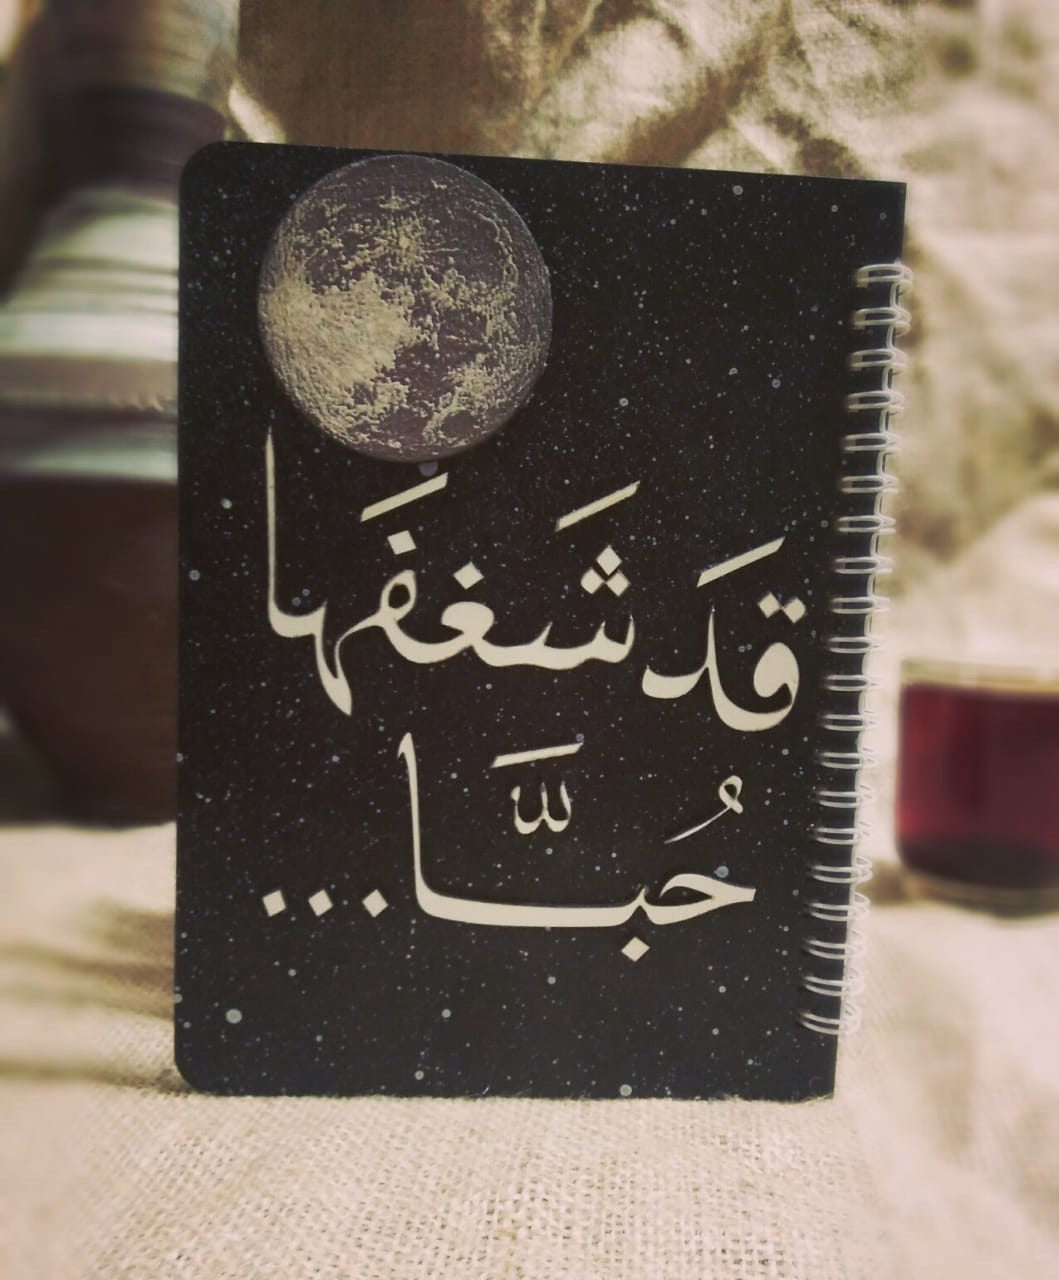 قَد شَغَفَها
حُبَّا...